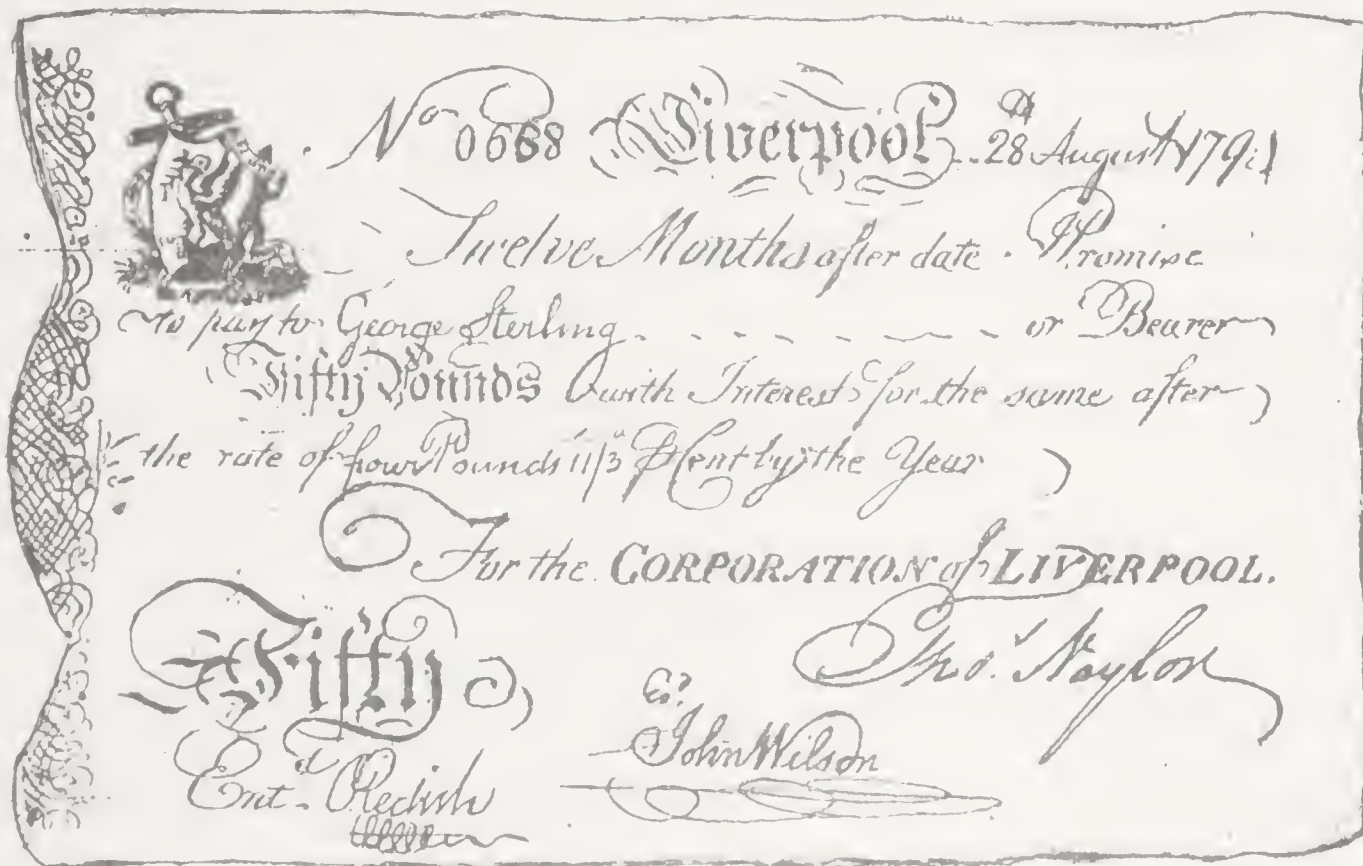 No 0668 Liverpool 28 August 1794
Twelve Months after date Promise
to pay to George Sterling or Bearer
Fifty Pounds with Interest for the same after
the rate of four Pounds 11/3 P Cent by the Year
For the CORPORATION of LIVERPOOL.
Thos. Naylor
Fifty
John Wilson
Entd.